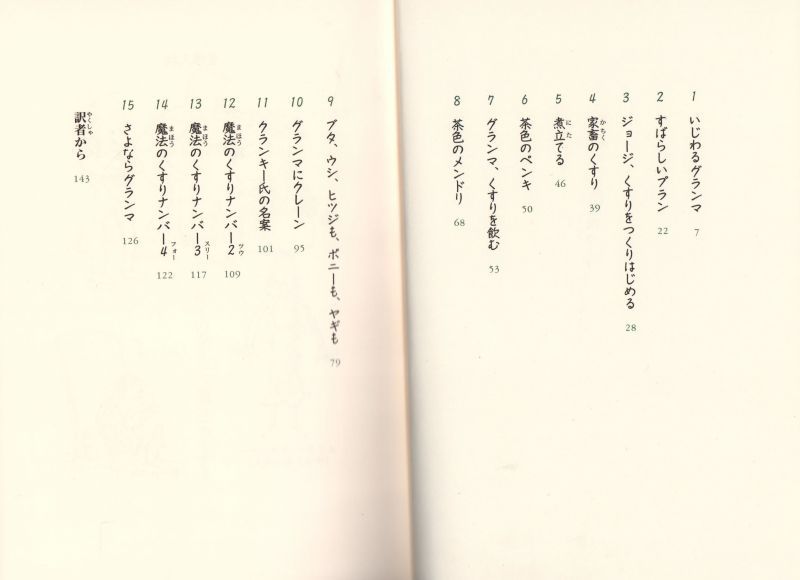 1 いじわるグランマ 7
2 すばらしいプラン 22
3 ジョージ、くすりをつくりはじめる 28
4 家畜のくすり 39
かちく
5 煮立てる 46
にた
6 茶色のペンキ 50
7 グランマ、くすりを飲む 53
8 茶色のメンドリ 68
9 ブタ、ウシ、ヒツジも、ポニーも、ヤギも 79
10 グランマにクレーン 95
11 クランキー氏の名案 101
12 魔法のくすりナンバー2 109
まほう ツウ
13 魔法のくすりナンバー3 117
まほう スリー
14 魔法のくすりナンバー4 122
まほう フォー
15 さよならグランマ 126
訳者から 143
やくしゃ